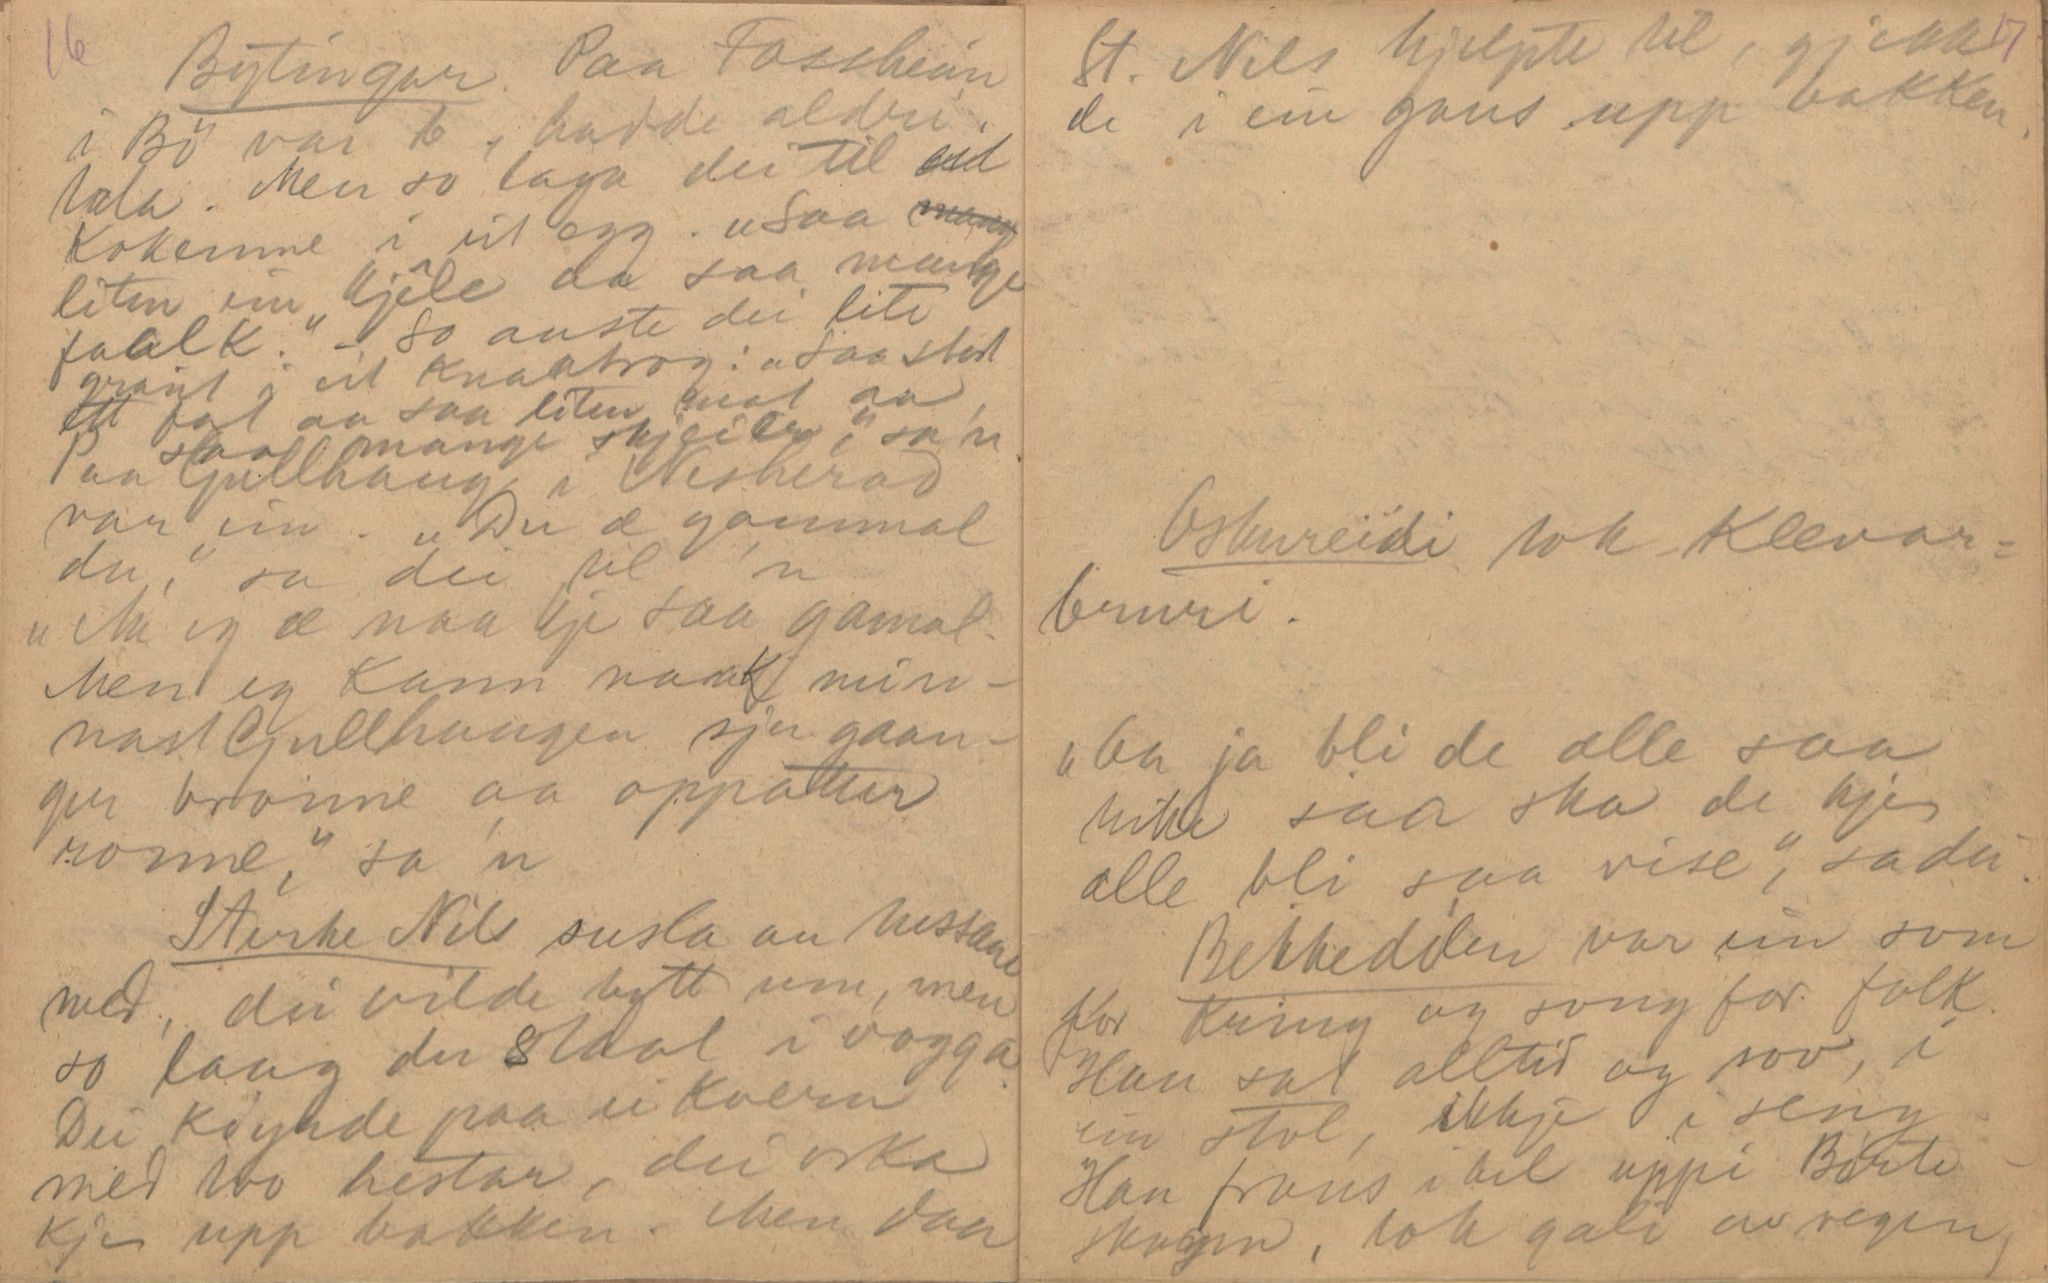 16
Bytingar. Paa Fossheim
i Bö var 6, hadde aldri
tala. Men so laga dei til
Kokeinne i eit egg. "Saa mang
liten ein kjele aa saa mange
faalk." - So auste dei lite
graut i eit knaatrog: "Saa stort
ett fat aa saa liten mat aa
saa mange skjeier," sa'n.
Paa Gullhaug i Nesherad
var ein. "Du æ gammal
du," sa dei til 'n
"Aa eg æ naa kje saa gamal.
Men eg kann naak min-
nast Gullhaugen sju gaan-
ger brønne aa oppatter
ronne," sa'n
Sterke Nils susla au tussane
med, dei vilde bytt um, men
so laag der staal i vogga
Dei köyrde paa ei kvern
med two hestar, dei orka
kje upp bakken. Men daa
17
St. Nils hjelpte til, gjekk
de i ein gaus upp bakken.
Oskureidi tok Klevar=
bruri.
"Aa ja bli de alle saa
rike saa ska de kje
alle bli saa vise", sa dei.
Bekkedölen var ein som
for kring og song for folk.
Han sat alltid og sov, i
ein stol, ikkje i seng
Han fraus ihel uppi Börte-
skogen, tok gali av vegen,